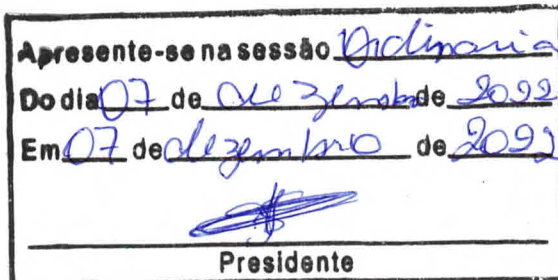 Apresente-se na sessão Ordinaria
Do dia 07 de dezembro de 2022
Em 07 de dezembro de 2022
Presidente